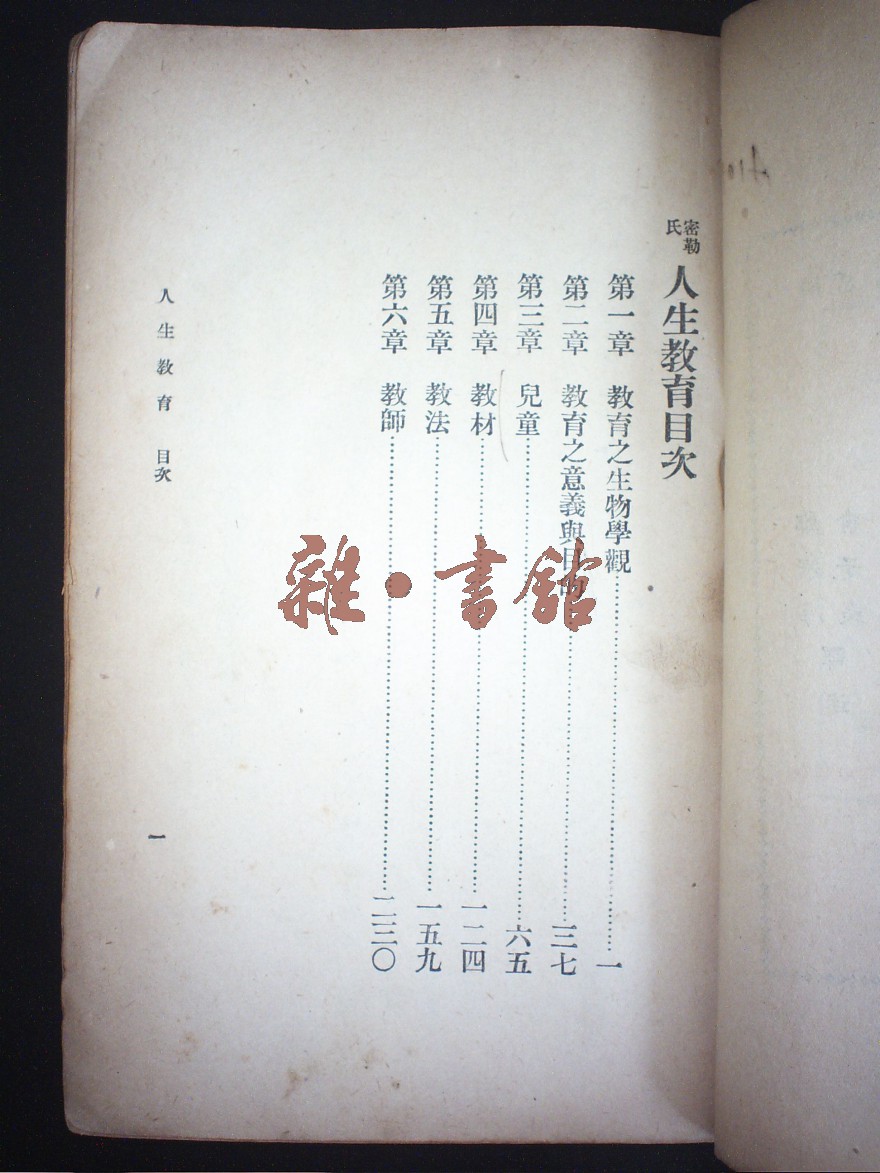 密勒氏 人生教育目次
第一章 教育之生物學觀 一
第二章 教育之意義與目的 三七
第三章 兒童 六五
第四章 教材 一二四
第五章 教法 一五九
第六章 教師 二三〇
人生教育 目次 一
雜·書館